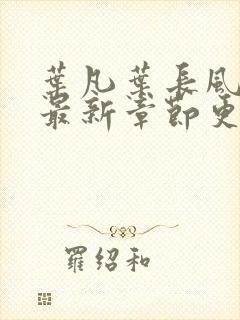 葉凡葉長風
最新章節更
羅紹和